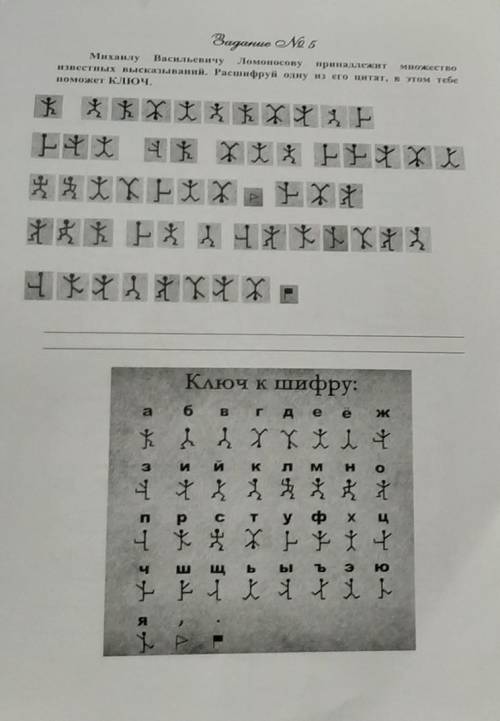 Задание № 5
Михаилу Васильевичу Ломоносову принадлежит множество
известных высказываний. Расшифруй одну из его цитат, в этом тебе
поможет КЛЮЧ.
Ключ к шифру:
а б в г д е ё ж
з и й к л м н о
п р с т у ф х ц
ч ш щ ь ы ъ э ю
я , .